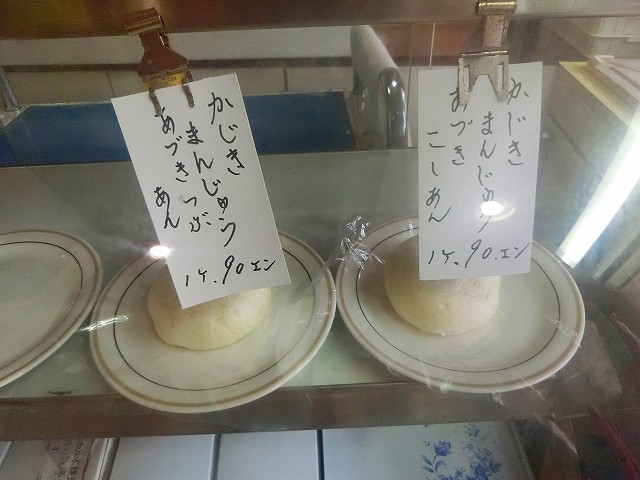 かじき
まんじゅう
あづきつぶ
あん
1ケ.90エン
かじき
まんじゅう
あづき
こしあん
1ケ.90.エン